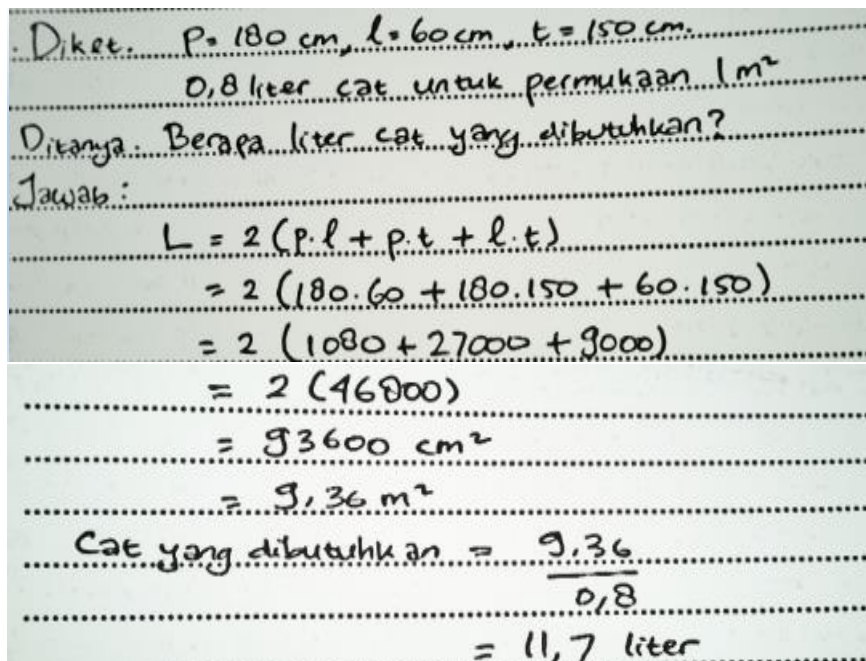 . Diket. P = 180 cm, l = 60 cm, t = 150 cm.
0,8 liter cat untuk permukaan 1 m²
Ditanya. Berapa liter cat yang dibutuhkan?
Jawab :
L = 2 (p.l + p.t + l.t)
= 2 (180.60 + 180.150 + 60.150)
= 2 (1080 + 27000 + 9000)
= 2 (46800)
= 93600 cm²
= 9,36 m²
Cat yang dibutuhkan = 9,36
0,8
= 11,7 liter